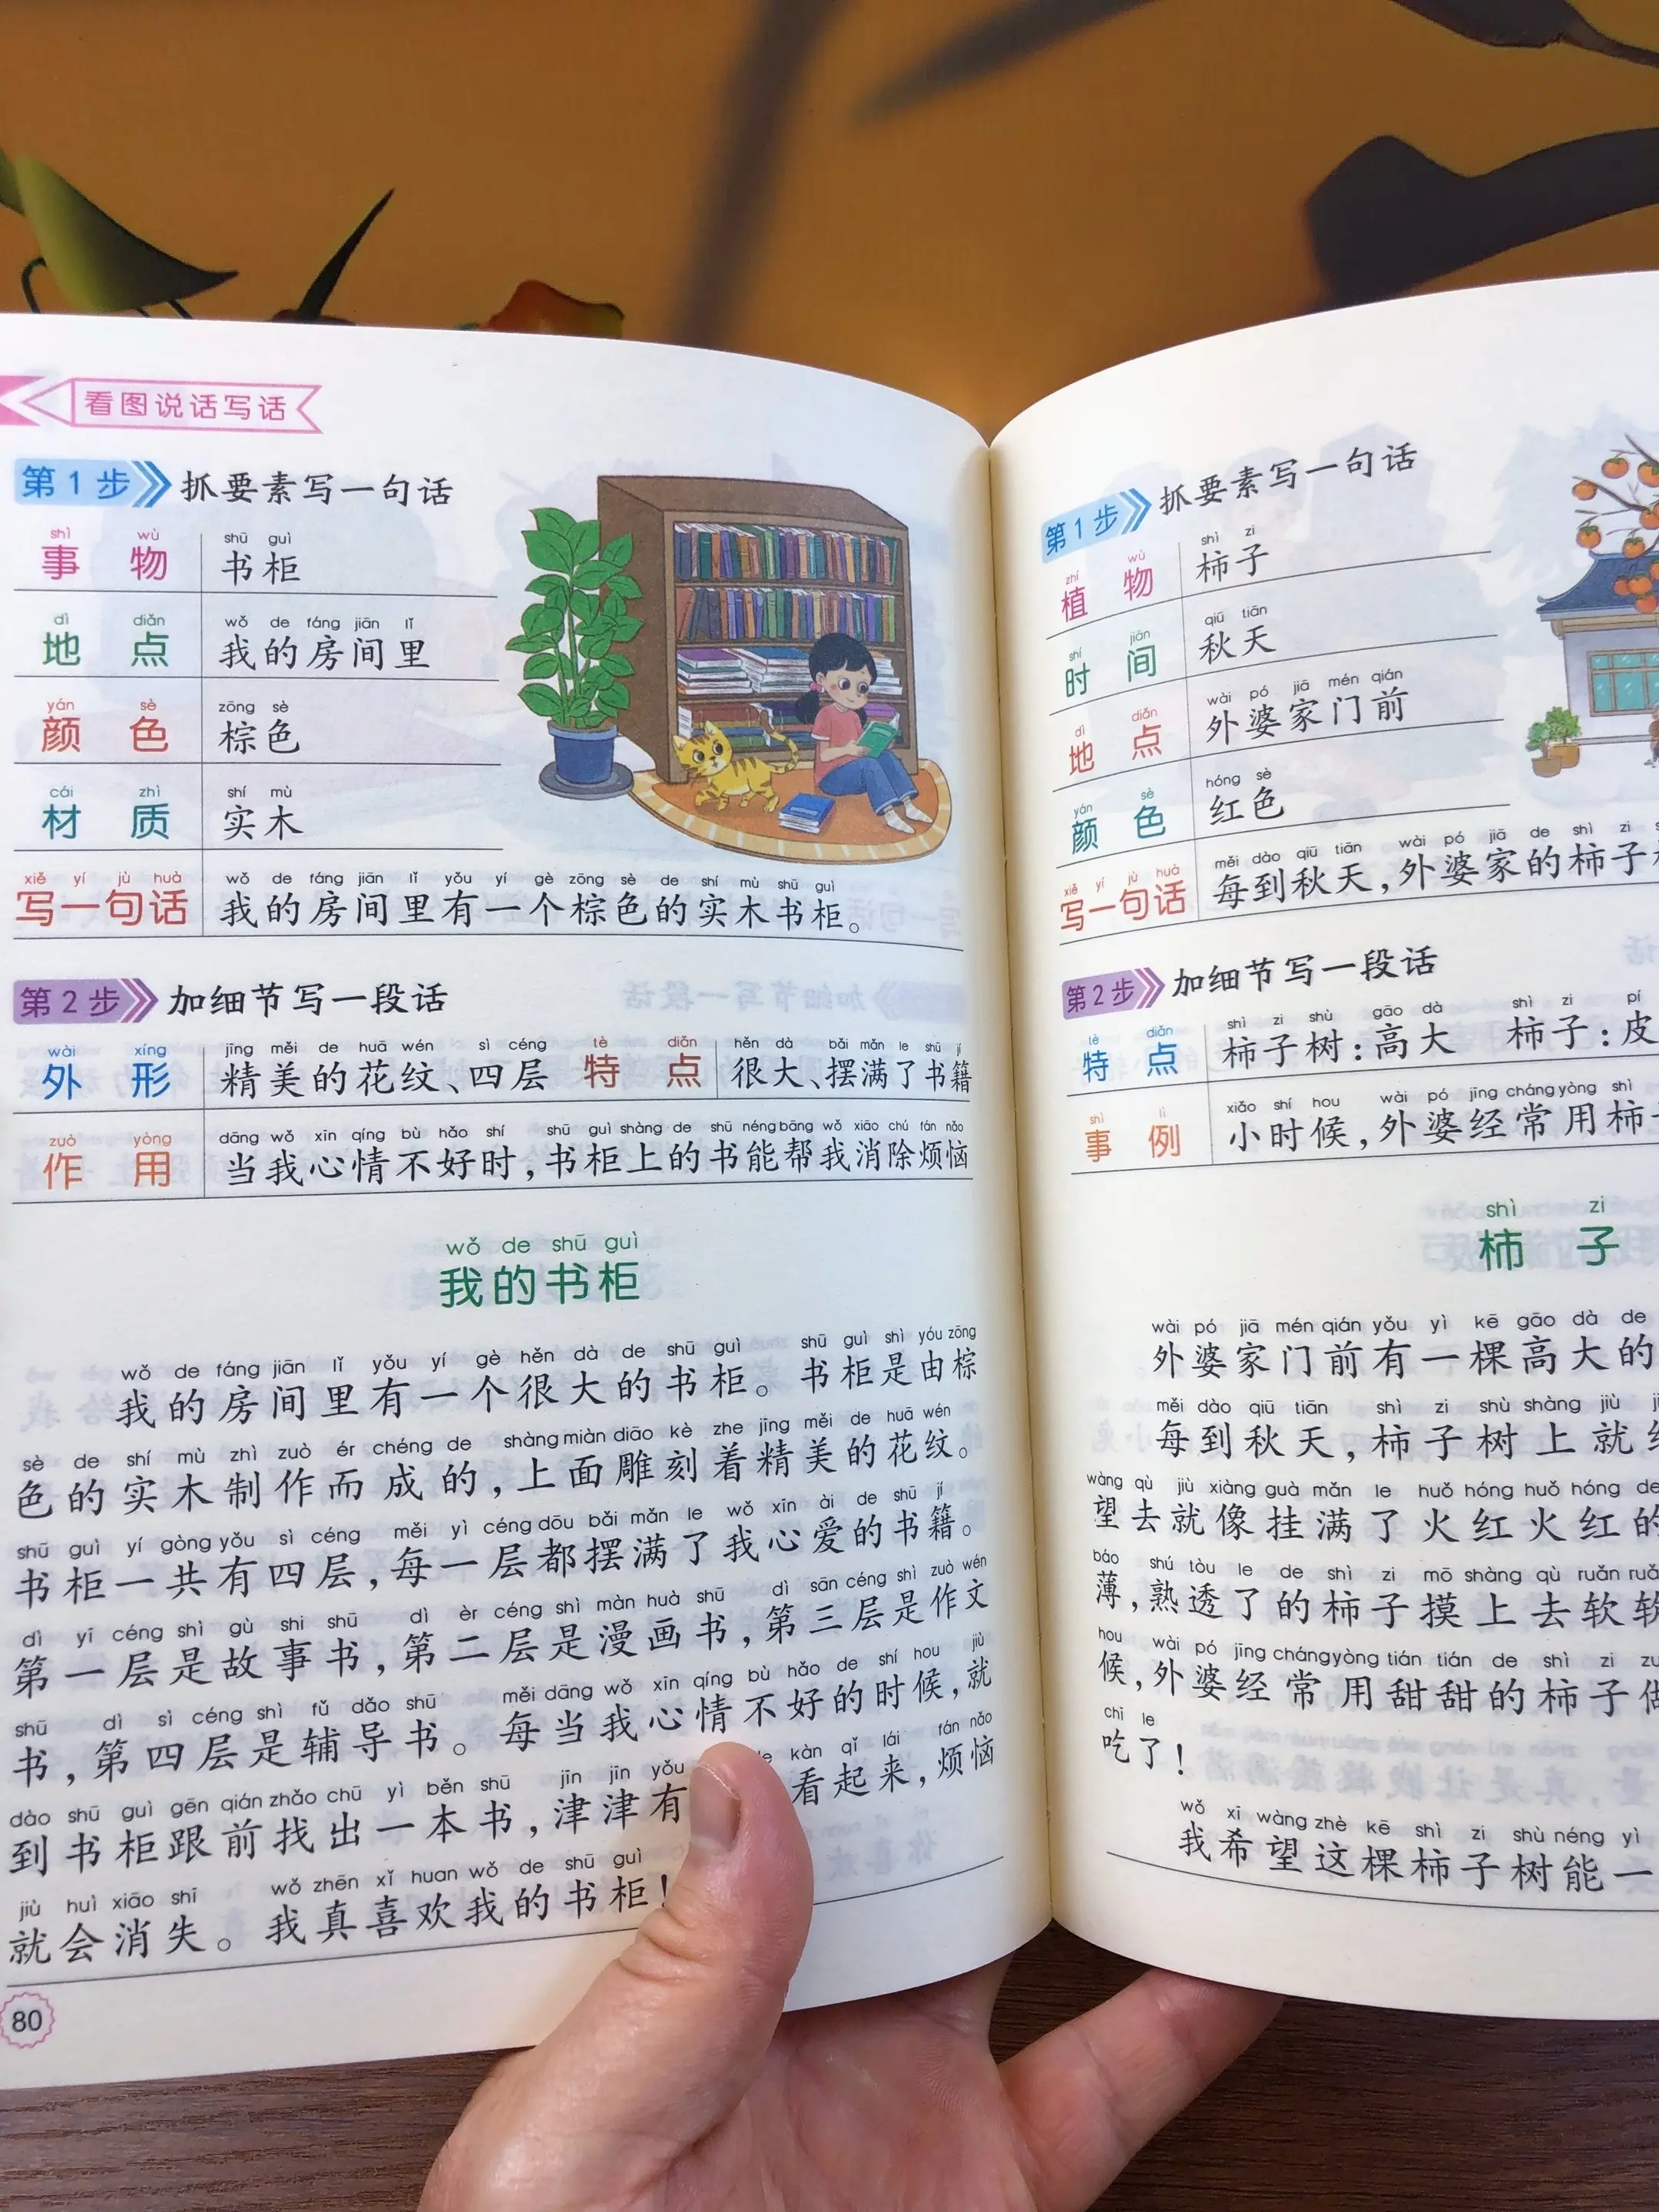 看图说话写话
第1步 抓要素写一句话
shì wù shū guì
事物 书柜
dì diǎn wǒ de fáng jiān lǐ
地点 我的房间里
yán sè zōng sè
颜色 棕色
cái zhì shí mù
材质 实木
xiě yí jù huà wǒ de fáng jiān lǐ yǒu yí gè zōng sè de shí mù shū guì
写一句话 我的房间里有一个棕色的实木书柜。
第2步 加细节写一段话
wài xíng jīng měi de huā wén sì céng tè diǎn hěn dà bǎi mǎn le shū jí
外形 精美的花纹、四层 特点 很大、摆满了书籍
zuò yòng dāng wǒ xīn qíng bù hǎo shí shū guì shàng de shū néng bāng wǒ xiāo chú fán nǎo
作用 当我心情不好时,书柜上的书能帮我消除烦恼
wǒ de shū guì
我的书柜
wǒ de fáng jiān lǐ yǒu yí gè hěn dà de shū guì shū guì shì yóu zōng
我的房间里有一个很大的书柜。书柜是由棕
sè de shí mù zhì zuò ér chéng de shàng miàn diāo kè zhe jīng měi de huā wén
色的实木制作而成的,上面雕刻着精美的花纹。
shū guì yí gòng yǒu sì céng měi yì céng dōu bǎi mǎn le wǒ xīn ài de shū jí
书柜一共有四层,每一层都摆满了我心爱的书籍。
dì yī céng shì gù shi shū dì èr céng shì màn huà shū dì sān céng shì zuò wén
第一层是故事书,第二层是漫画书,第三层是作文
shū dì sì céng shì fǔ dǎo shū měi dāng wǒ xīn qíng bù hǎo de shí hou jiù
书,第四层是辅导书。每当我心情不好的时候,就
dào shū guì gēn qián zhǎo chū yì běn shū jīn jīn yǒu kàn qǐ lái fán nǎo
到书柜跟前找出一本书,津津有 看起来,烦恼
jiù huì xiāo shī wǒ zhēn xǐ huan wǒ de shū guì
就会消失。我真喜欢我的书柜!
80
第1步 抓要素写一句话
zhí wù shì zi
植物 柿子
shí jiān qiū tiān
时间 秋天
dì diǎn wài pó jiā mén qián
地点 外婆家门前
yán sè hóng sè
颜色 红色
xiě yí jù huà měi dào qiū tiān wài pó jiā de shì zi
写一句话 每到秋天,外婆家的柿子
第2步 加细节写一段话
tè diǎn shì zi shù gāo dà shì zi pí
特点 柿子树:高大 柿子:皮
shì lì xiǎo shí hou wài pó jīng cháng yòng shì
事例 小时候,外婆经常用柿
shì zi
柿子
wài pó jiā mén qián yǒu yì kē gāo dà de
外婆家门前有一棵高大的
měi dào qiū tiān shì zi shù shàng jiù
每到秋天,柿子树上就
wàng qù jiù xiàng guà mǎn le huǒ hóng huǒ hóng de
望去就像挂满了火红火红的
báo shú tòu le de shì zi mō shàng qù ruǎn
薄,熟透了的柿子摸上去软软
hou wài pó jīng cháng yòng tián tián de shì zi
候,外婆经常用甜甜的柿子
chī le
吃了!
wǒ xī wàng zhè kē shì zi shù néng yì
我希望这棵柿子树能一